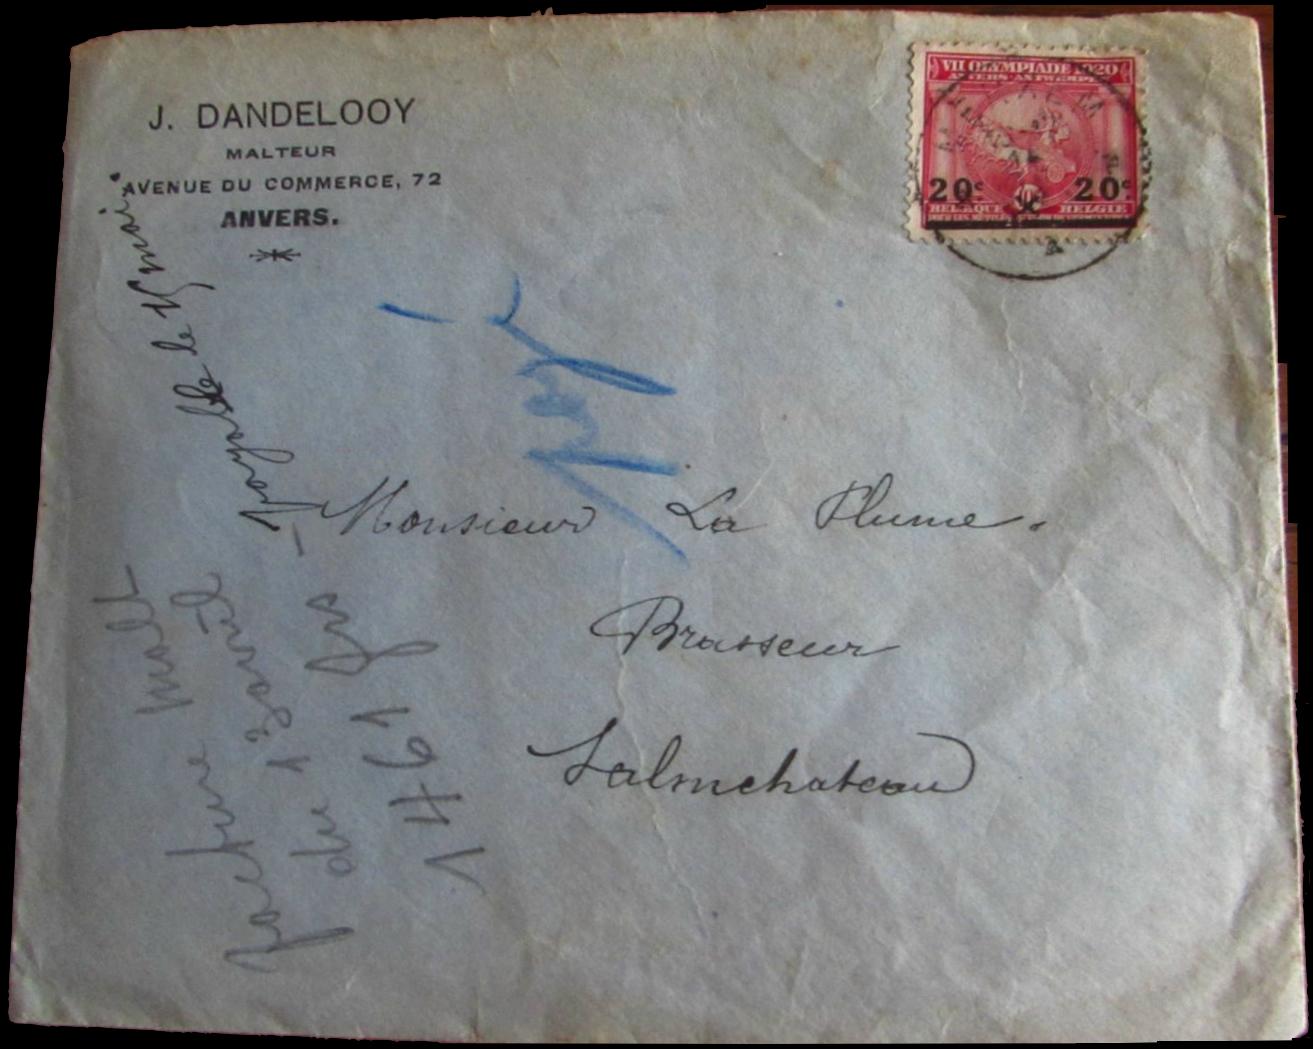 J. DANDELOOY
MALTEUR
AVENUE DU COMMERCE, 72
ANVERS.
VII OLYMPIADE 1920
ANVERS-ANTWERPEN
20c 20c
BELGIQUE BELGIE
Monsieur La Plume.
Brasseur
Salmchateau
payable le 15 mai
facture malt
du 1 avril
1461 frs